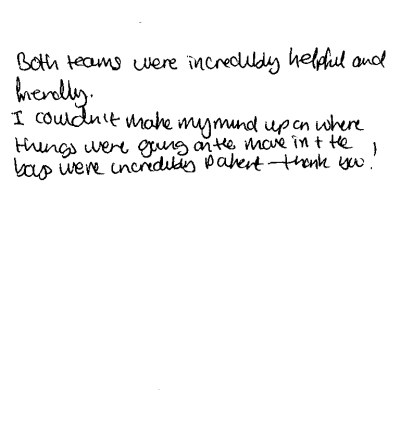 Both teams were incredibly helpful and
friendly.
I couldn't make my mind up on where
things were going on the move in + the
boys were incredibly patient - thank you!